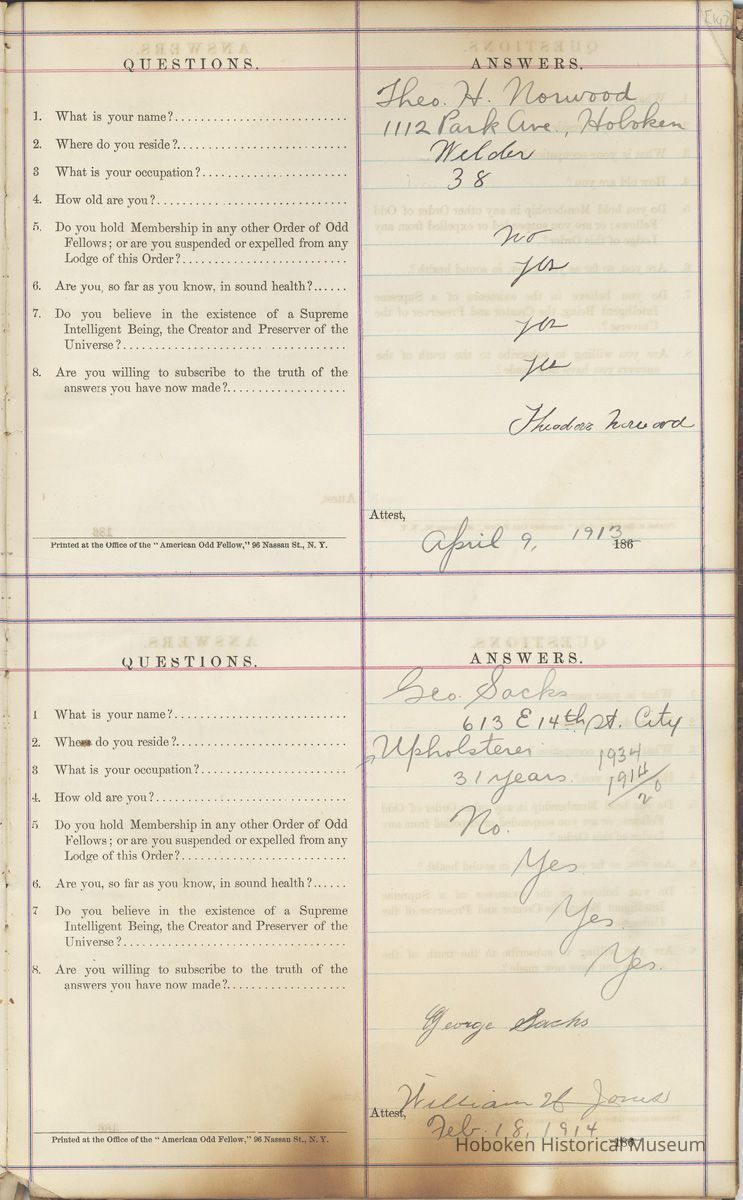 [147]
QUESTIONS.
ANSWERS.
1. What is your name?
Theo. H. Norwood
2. Where do you reside?
1112 Park Ave., Hoboken
3 What is your occupation?
Welder
4. How old are you?
38
5. Do you hold Membership in any other Order of Odd
Fellows; or are you suspended or expelled from any
Lodge of this Order?
no
6. Are you, so far as you know, in sound health?
yes
7. Do you believe in the existence of a Supreme
Intelligent Being, the Creator and Preserver of the
Universe?
yes
8. Are you willing to subscribe to the truth of the
answers you have now made?
yes
Theodore Norwood
Attest,
April 9, 1913
186
Printed at the Office of the "American Odd Fellow," 96 Nassau St., N. Y.
QUESTIONS.
ANSWERS.
1 What is your name?
Geo. Sacks
2. Where do you reside?
613 E 14th St. City
3 What is your occupation?
Upholsterer
4. How old are you?
31 years.
1934
1914
20
5 Do you hold Membership in any other Order of Odd
Fellows; or are you suspended or expelled from any
Lodge of this Order?
No.
6. Are you, so far as you know, in sound health?
Yes.
7 Do you believe in the existence of a Supreme
Intelligent Being, the Creator and Preserver of the
Universe?
Yes.
8. Are you willing to subscribe to the truth of the
answers you have now made?
Yes.
George Sacks
William H Jones
Attest,
Feb. 18, 1914
186
Printed at the Office of the "American Odd Fellow," 96 Nassau St., N. Y.
Hoboken Historical Museum